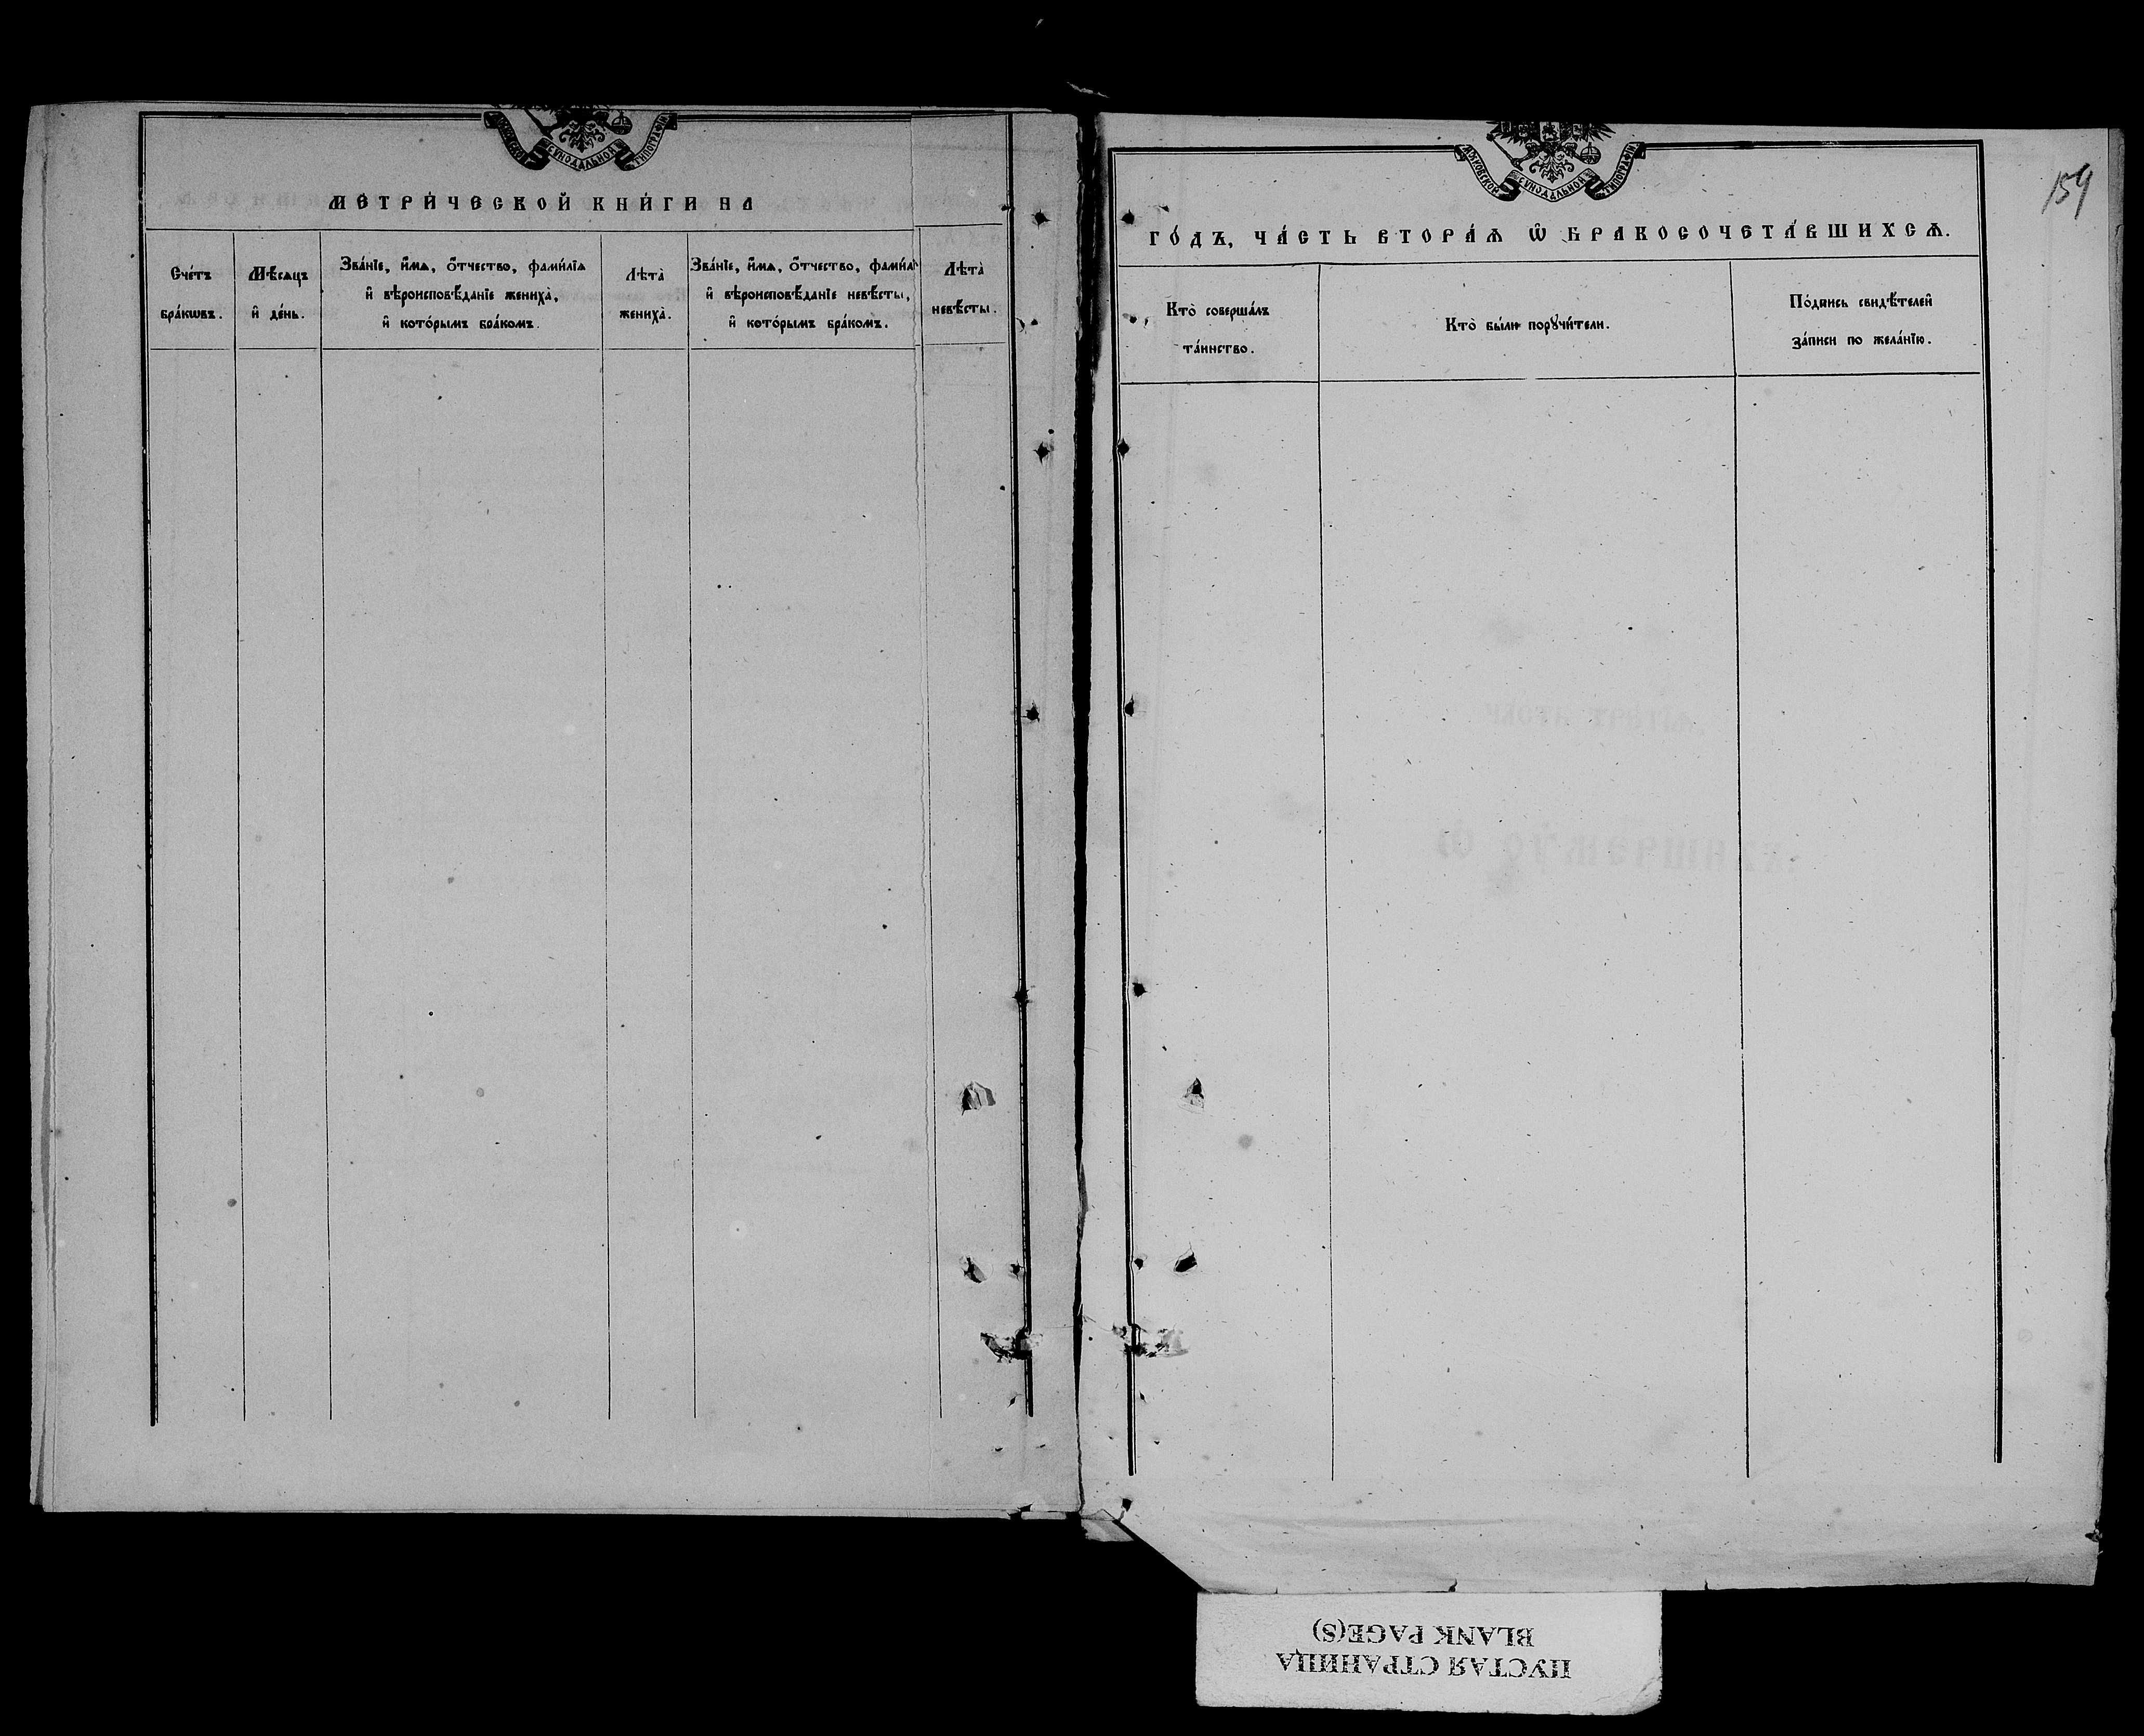 МОСКОВСКОЙ СѴНОДАЛЬНОЙ ТИПОГРАФІИ
МЕТРИ́ЧЕСКОЙ КНИ́ГИ НА
Сче́тъ
бра́кѡвъ.
Мѣ́сяцъ
и҆ де́нь.
Зва́нїе, и҆́мѧ, ѻ҆́тчество, фами́лїѧ
и҆ вѣроисповѣ́данїе женихà,
и҆ кото́рымъ бра́комъ.
Лѣтà
женихà.
Зва́нїе, и҆́мѧ, ѻ҆́тчество, фамил
и҆ вѣроисповѣ́данїе невѣ́сты,
и҆ кото́рымъ бра́комъ.
Лѣтà
невѣ́сты.
МОСКОВСКОЙ СѴНОДАЛЬНОЙ ТИПОГРАФІИ
159
ГО́ДЪ, ЧА́СТЬ ВТОРА́Ѧ Ѡ҆ БРАКОСОЧЕТА́ВШИХСѦ.
Кто̀ соверша́лъ
та́инство.
Кто̀ бы́ли порꙋчи́тели.
По́дпись свидѣ́телей
за́писи по жела́нїю.
ПУСТАЯ СТРАНИЦА
BLANK PAGE(S)